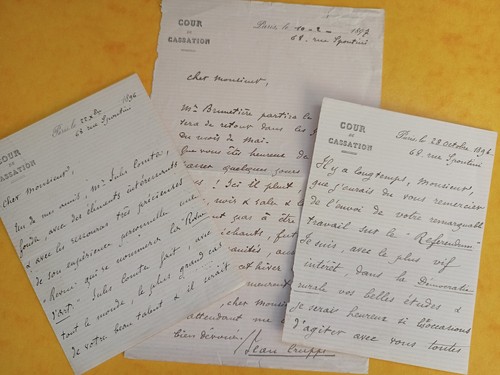 COUR
DE
CASSATION
Paris, le 22 Xbre 1896
68, rue Spontini
Cher Monsieur,
Un de mes amis, Mr Jules Comte,
fonde, avec des éléments intéressants
& avec les ressources très précieuses
de son expérience personnelle une
"Revue" qui se nommera la "Revue
d'Art". Jules Comte fait, avec
tout le monde, le plus grand cas
de votre beau talent & il serait
COUR
DE
CASSATION
Paris, le 10-2- 1897
68, rue Spontini
Cher Monsieur,
Mr Brunetière partira le
sera de retour dans les
du mois de mai.
Que vous êtes heureux de
passer quelques jours
! Ici il pleut,
noir & sale &
pas à être
méchants,
& hiver
cher Monsieur
attendant me
bien dévoué
Jean Cruppi
COUR
DE
CASSATION
Paris, le 28 octobre 1896
68, rue Spontini
Il y a longtemps, Monsieur,
que j'aurais du vous remercier
de l'envoi de votre remarquable
travail sur le "Referendum"
Je suis, avec le plus vif
intérêt dans la Démocratie
rurale vos belles études &
je serais heureux si l'occasion
d'agiter avec vous toutes